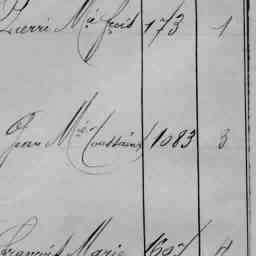 Pierre Mie fruit 173 1
Jean Mie Toussaint 1083 3
François Marie 1607 4